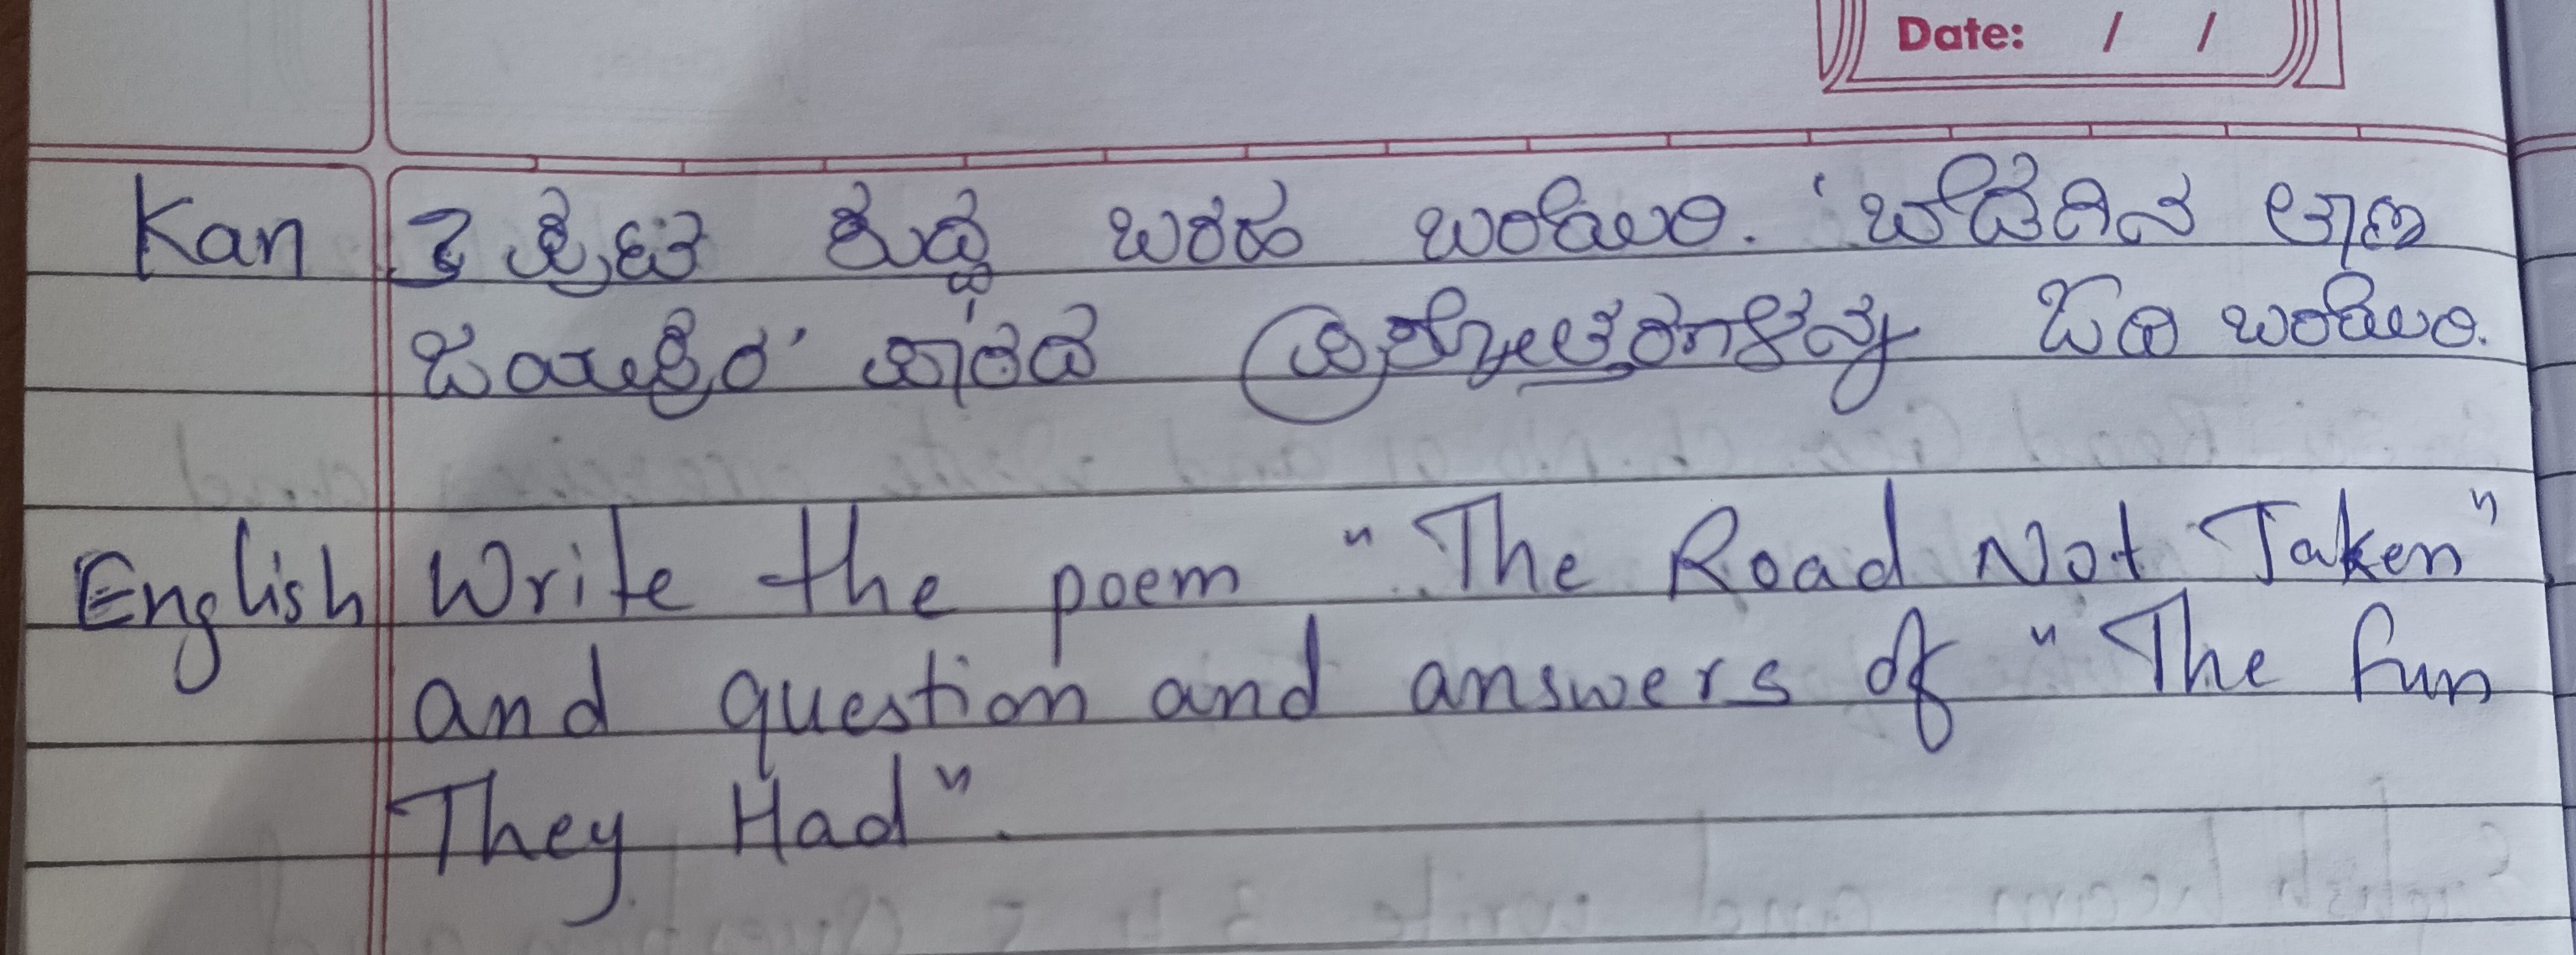 Date: / /
Kan 3 ಪುಟ ಶುದ್ಧ ಬರಹ ಬರೆಯಿರಿ. ‘ಬೆಡಗಿನ ತಾಣ
English ಜಯಪುರ’ ಪಾಠದ ಪ್ರಶ್ನೋತ್ತರಗಳನ್ನು ಓದಿ ಬರೆಯಿರಿ.
Write the poem "The Road Not Taken"
and question and answers of "The fun
They Had".